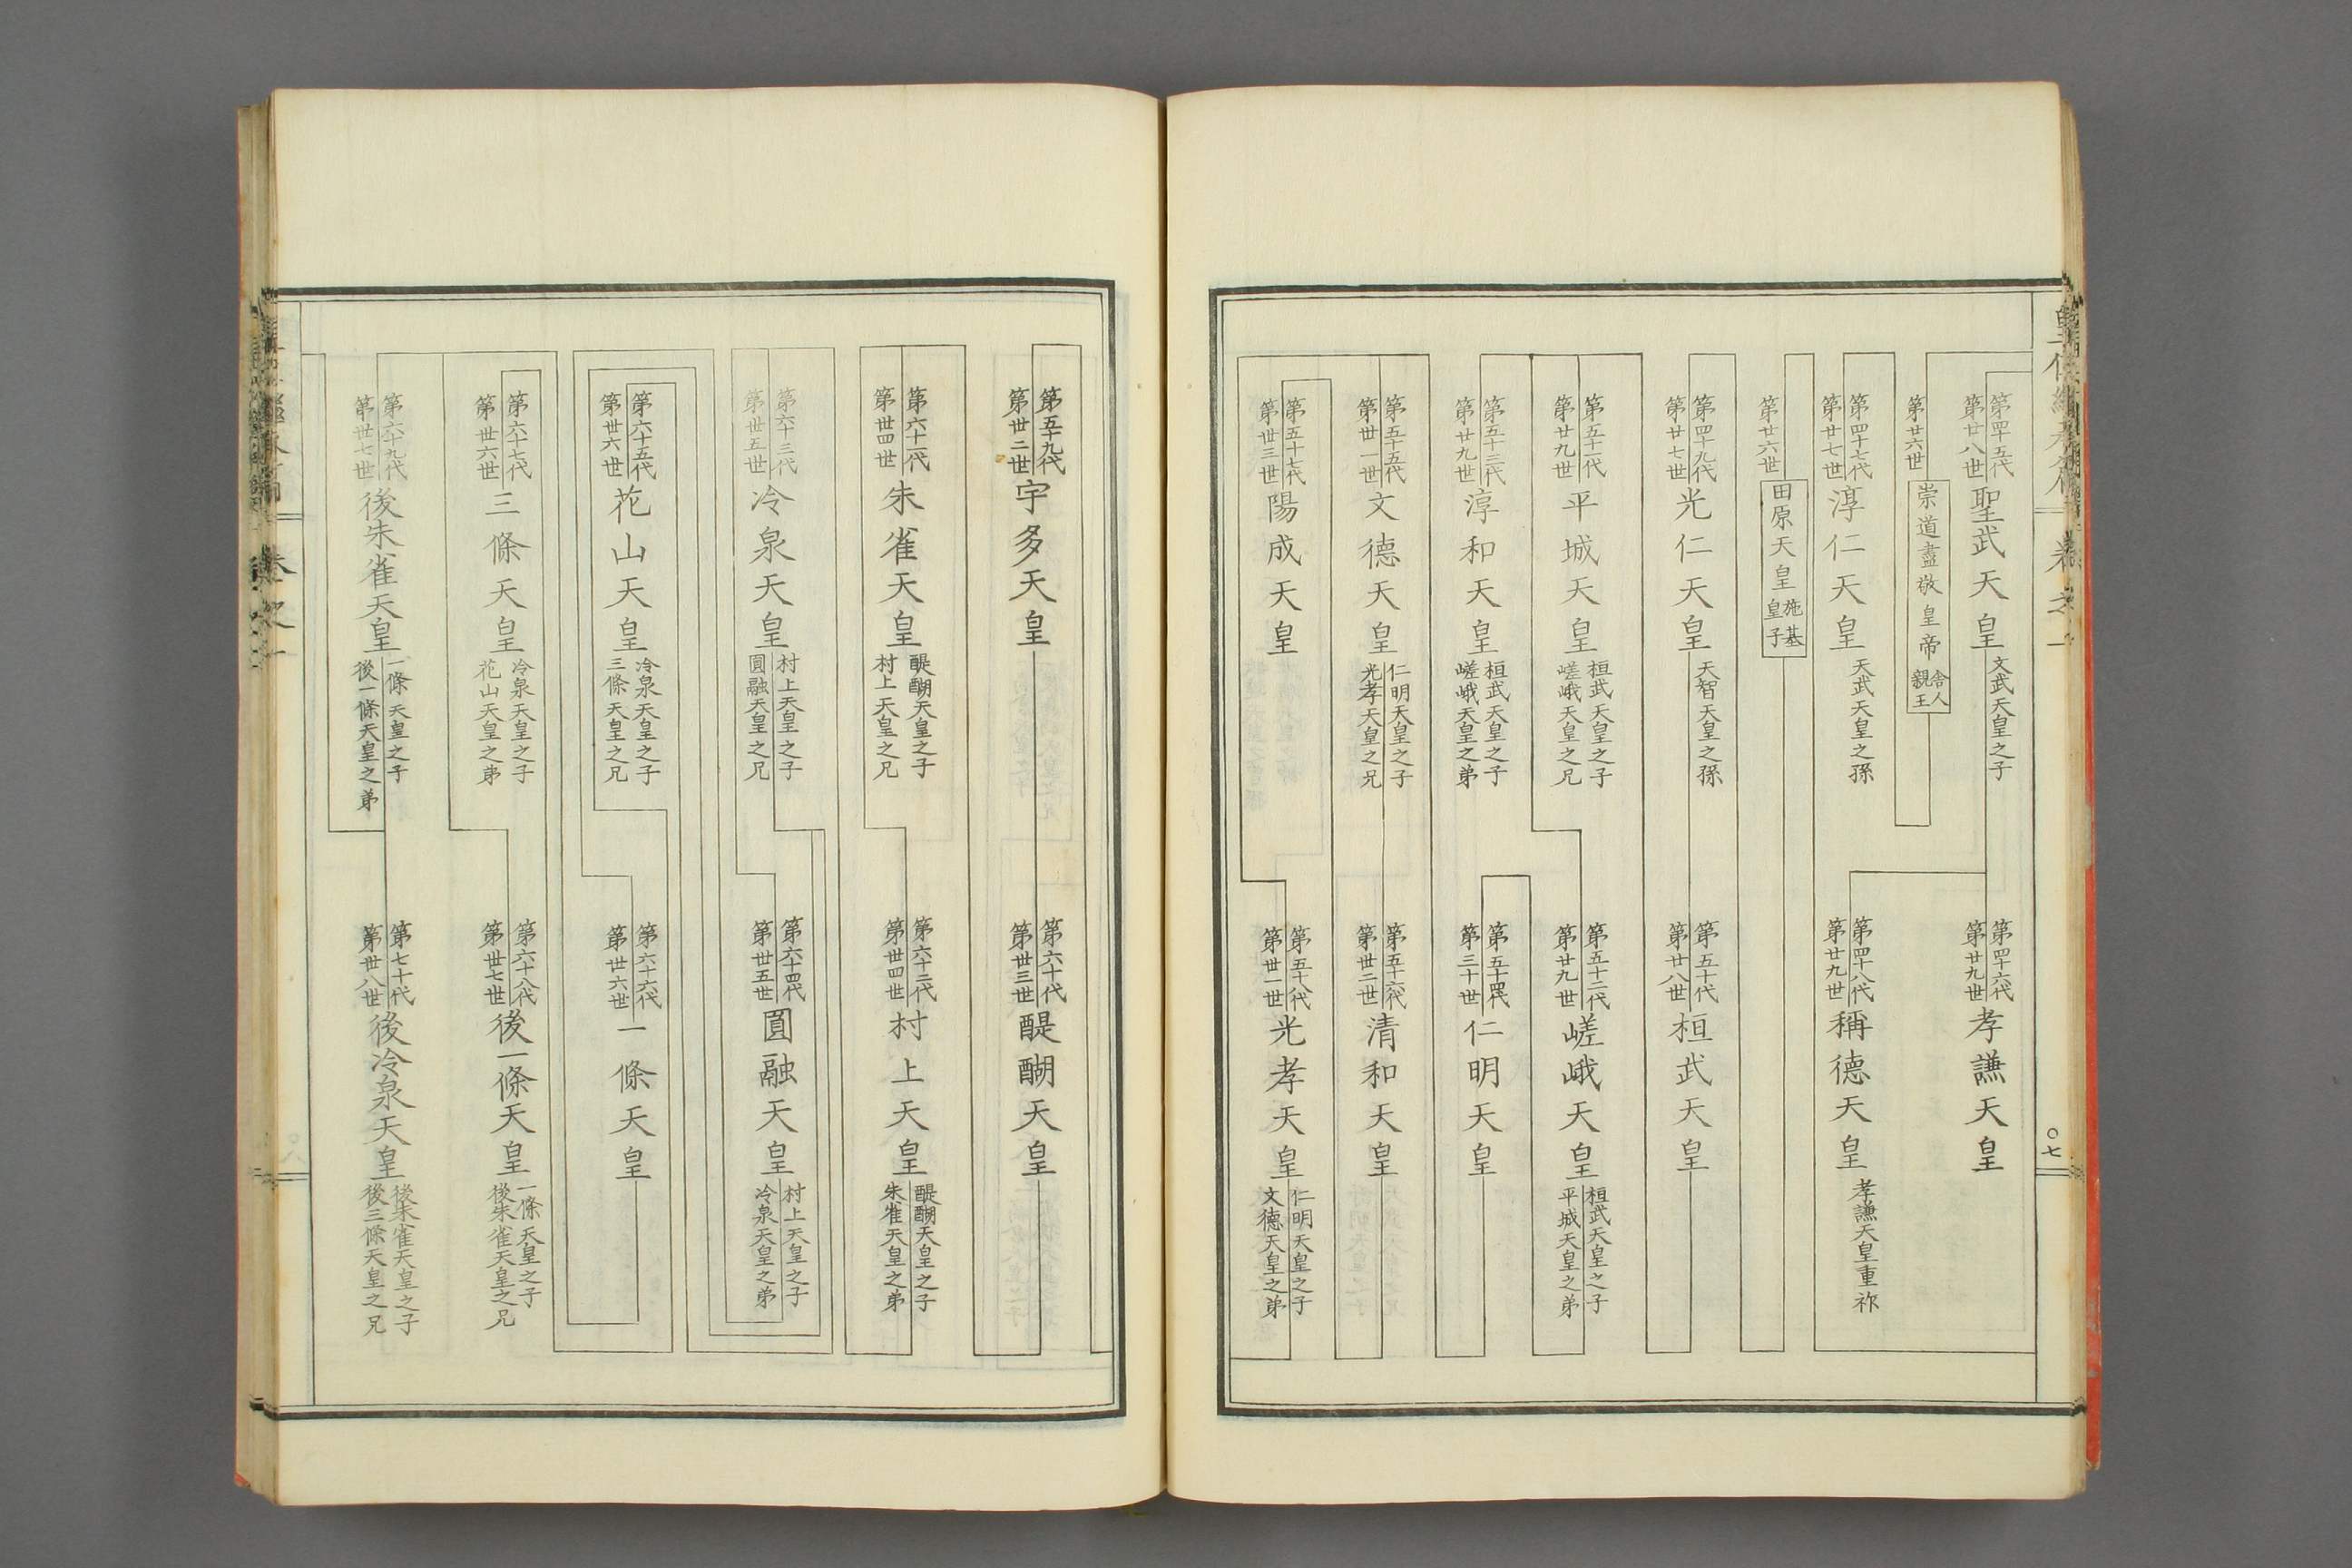 第四十五代
第廿八世
聖武天皇
文武天皇之子
第四十六代
第廿九世
孝謙天皇
第廿六世
崇道盡敬皇帝
舎人
親王
第四十七代
第廿七世
淳仁天皇
天武天皇之孫
第四十八代
第廿九世
稱德天皇
孝謙天皇重祚
第廿六世
田原天皇
施基
皇子
第四十九代
第廿七世
光仁天皇
天智天皇之孫
第五十代
第廿八世
桓武天皇
第五十一代
第廿九世
平城天皇
桓武天皇之子
嵯峨天皇之兄
第五十二代
第廿九世
嵯峨天皇
桓武天皇之子
平城天皇之弟
第五十三代
第廿九世
淳和天皇
桓武天皇之子
嵯峨天皇之弟
第五十四代
第三十世
仁明天皇
第五十五代
第丗一世
文德天皇
仁明天皇之子
光孝天皇之兄
第五十六代
第丗二世
清和天皇
第五十七代
第丗三世
陽成天皇
第五十八代
第丗一世
光孝天皇
仁明天皇之子
文德天皇之弟
〇七
第五十九代
第丗二世
宇多天皇
第六十代
第丗三世
醍醐天皇
第六十一代
第丗四世
朱雀天皇
醍醐天皇之子
村上天皇之兄
第六十二代
第丗四世
村上天皇
醍醐天皇之子
朱雀天皇之弟
第六十三代
第丗五世
冷泉天皇
村上天皇之子
圓融天皇之兄
第六十四代
第丗五世
圓融天皇
村上天皇之子
冷泉天皇之弟
第六十五代
第丗六世
花山天皇
冷泉天皇之子
三條天皇之兄
第六十六代
第丗六世
一條天皇
第六十七代
第丗六世
三條天皇
冷泉天皇之子
花山天皇之弟
第六十八代
第丗七世
後一條天皇
一條天皇之子
後朱雀天皇之兄
第六十九代
第丗七世
後朱雀天皇
一條天皇之子
後一條天皇之弟
第七十代
第丗八世
後冷泉天皇
後朱雀天皇之子
後三條天皇之兄